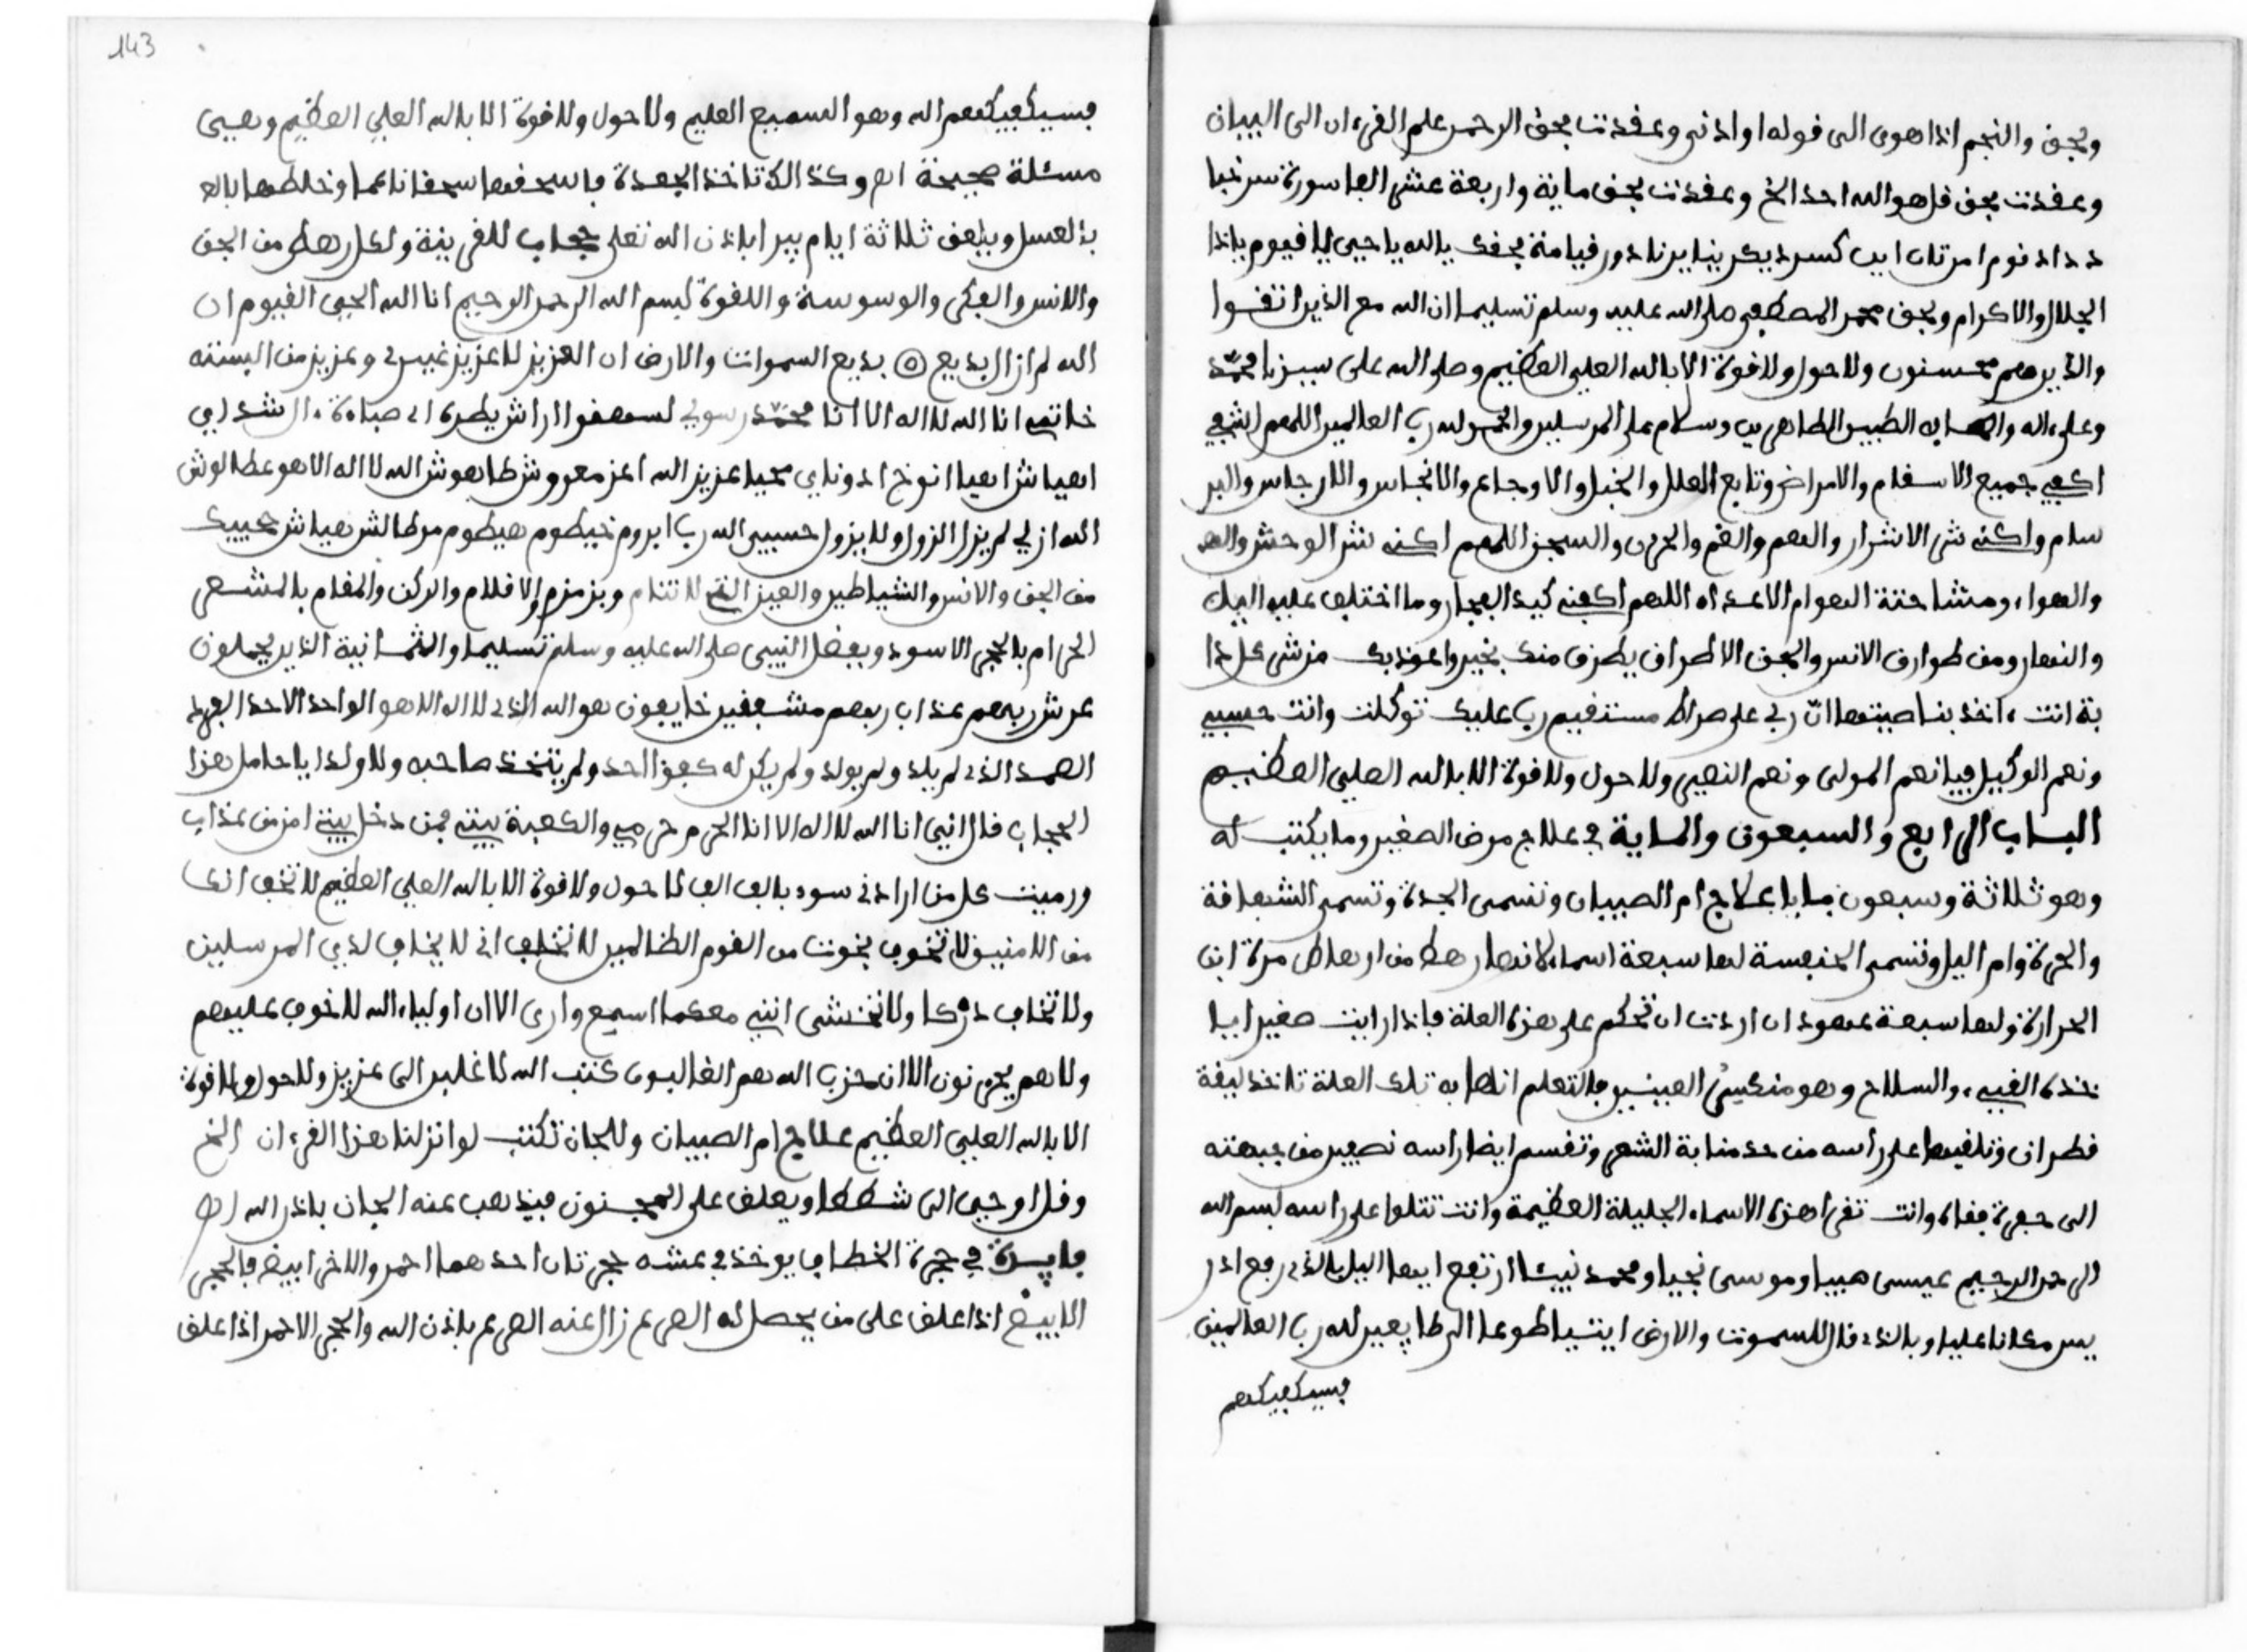 وبحق والنجم اذا هوى الى قوله او ادنى وعقدت بحق الرحمن علم القرءان الى البيان
وعقدت بحق قل هو الله احد الخ وعقدت بحق ماية واربعة عشر الفا سورة
بحقك يا الله يا حيى يا قيوم ياذا
الجلال والاكرام وبحق محمد المصطفى صلى الله عليه وسلم تسليما ان الله مع الذين اتقوا
والذين هم محسنون ولا حول ولا قوة الا بالله العلي العظيم وصلى الله على سيدنا محمد
وعلى ءاله واصحابه الطيبين الطاهرين وسلام على المرسلين والحمد لله رب العالمين اللهم اشفي
اكفي جميع الاسقام والامراض وتابع العلل والخبل والاوجاع والانجاس والارجاس والبر
سام واكفه شر الاشرار والهم والغم والحزن والسجن اللهم اكفه شر الوحش والهم
والهواء ومشاحتة الهوام الاعداء اللهم اكفه كيد الفجار وما اختلف عليه اليل
والنهار ومن طوارق الانس والجن الا طراق يطرق منك بخير واعوذ بك من شر كل دا
بة انت ءاخذ بناصيتها ان ربي على صراط مستقيم رب عليك توكلت وانت حسبي
ونعم الوكيل فيا نعم المولى ونعم النصير ولا حول ولا قوة الا بالله العلي العظيم
الباب الرابع والسبعون والماية في علاج مرض الصغير وما يكتب له
وهو ثلاثة وسبعون بابا علاج ام الصبيان وتسمى الجدة وتسمى الشهافة
والحرة وام اليل وتسمى الخنفسة لها سبعة اسماء لانها رهط من ارهاط مرة ابن
الحرارة ولها سبعة عهود ان اردت ان تحكم على هذه العلة فاذا رايت صغيرا بـا
خذه القيء والسلاح وهو منكس العينين فالتعلم انها به تلك العلة تاخذ ليقة
قطران وتلقيها على راسه من حد منابة الشعر وتقسم ايضا راسه نصفين من جبهته
الى حفرة قفاه وانت تقرا هذه الاسماء الجليلة العظيمة وانت تتلوا على راسه بسم الله
الرحمن الرحيم عيسى هيبا وموسى نجيا ومحمد نبيئا ارتفع ايها اليل بالذي رفع ادر
يس مكانا عليا وبالذي قال للسموت والارض ايتيا طوعا الى طايعين لله رب العالمين
فسيكفيكهم
143
فسيكفيكهم الله وهو السميع العليم ولا حول ولا قوة الا بالله العلي العظيم وهيى
مسئلة صحيحة اهـ وكذالك تاخذ الجعدة فاسحقها سحقا ناعما وخلطها بالعـ
بالعسل ويلعق ثلاثة ايام يبرا باذن الله تعلى حجاب للقرينة ولكل رهط من الجن
والانس والفكر والوسوسة واللقوة بسم الله الرحمن الرحيم انا الله الحي القيوم ان
الله لم ازال بديع بديع السموات والارض ان العزيز لا عزيز غيري وعزيز من البسته
خاتمه انا الله لا اله الا انا محمد رسولي
اهيا شراهيا ادوناي عزيز الله الله لا اله الا هو
الله ازلي لم يزل الزول ولا يزول حسبي الله رب
من الجن والانس والشياطين والعين التي لا تنام وبزمزم والاقلام والركن والمقام بالمشعر
الحرام بالحجر الاسود وبفضل النبي صلى الله عليه وسلم تسليما والثمانية الذين يحملون
عرش ربهم عذاب ربهم مشفقين خايفون هو الله الذي لا اله الا هو الواحد الاحد الفرد
الصمد الذي لم يلد ولم يولد ولم يكن له كفؤا احد ولم يتخذ صاحبه ولا ولدا يا حامل هذا
الحجاب قال انني انا الله لا اله الا انا الحرم حرمي والكعبة بيتي فمن دخل بيتي امن من عذاب
ورميت كل من ارادني سوء بالف الف لا حول ولا قوة الا بالله العلي العظيم لا تخف انك
من الامنين لا تخوف نجوت من القوم الظالمين لا تخاف اني لا يخاف لدي المرسلين
ولا تخاف دركا ولا تخشى انني معكما اسمع وارى الا ان اولياء الله لا خوف عليهم
ولا هم يحزنون الا ان حزب الله هم الغالبون كتب الله لاغلبن الى عزيز ولا حول ولا قوة
الا بالله العلي العظيم علاج ام الصبيان وللجان تكتب لو انزلنا هذا القرءان الخ
وقل اوحي الى شططا ويعلق على المجنون فيذهب عنه الجان باذن الله اهـ
فايدة في حجرة الخطاف يوخذ في عشه حجرتان احدهما احمر والاخر ابيض فالحجر
الابيض اذا علق على من يحصل له الصرع زال عنه الصرع باذن الله والحجر الاحمر اذا علق